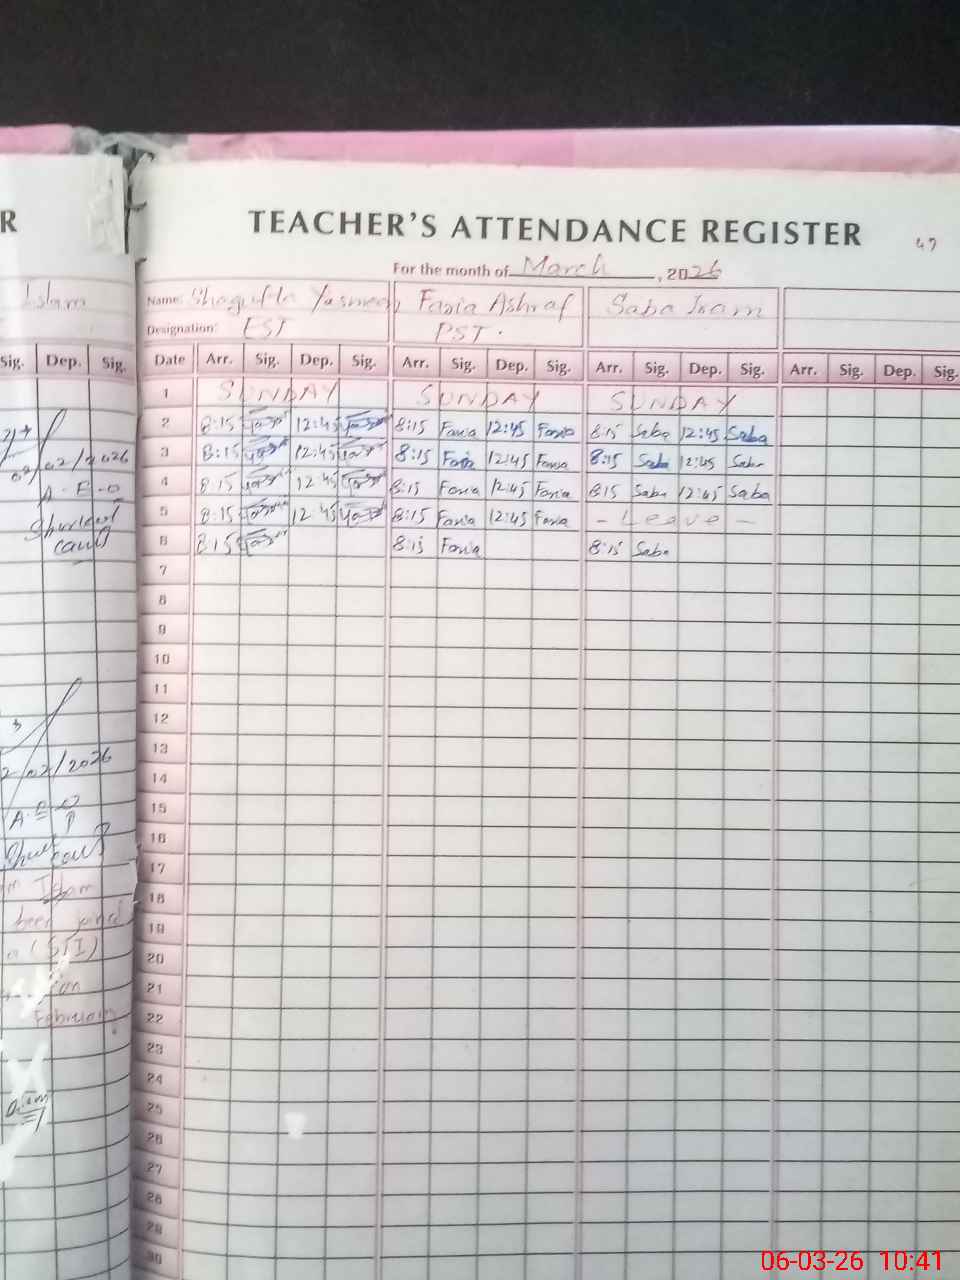 R
TEACHER'S ATTENDANCE REGISTER
47
For the month of March, 2026
Islam
Name: Shagufta Yasmeen Fazia Ashraf Saba Iram
Designation: EST PST.
Sig. Dep. Sig.
Date Arr. Sig. Dep. Sig. Arr. Sig. Dep. Sig. Arr. Sig. Dep. Sig. Arr. Sig. Dep. Sig.
1 SUNDAY SUNDAY SUNDAY
2 8:15 12:45 8:15 Fazia 12:45 Fazia 8:15 Saba 12:45 Saba
3 8:15 12:45 8:15 Fazia 12:45 Fazia 8:15 Saba 12:45 Saba
4 8:15 12:45 8:15 Fazia 12:45 Fazia 8:15 Saba 12:45 Saba
5 8:15 12:45 8:15 Fazia 12:45 Fazia - Leave -
6 8:15 8:15 Fazia 8:15 Saba
7
8
9
10
11
12
13
14
15
16
17
18
19
20
21
22
23
24
25
26
27
28
29
30
02/2026
A.E.O
2/02/2026
A.E.O
Islam
been joined
(STI)
on
February
06-03-26 10:41